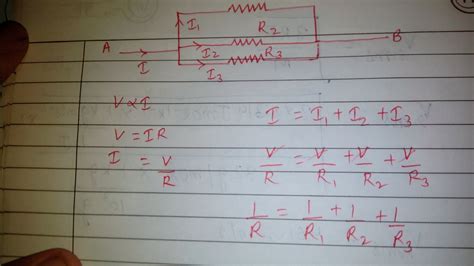 I₁
R₂
A I I₂ R₃ B
I₃
V ∝ I
V = IR
I = V/R
I = I₁ + I₂ + I₃
V/R = V/R₁ + V/R₂ + V/R₃
1/R = 1/R₁ + 1/R₂ + 1/R₃